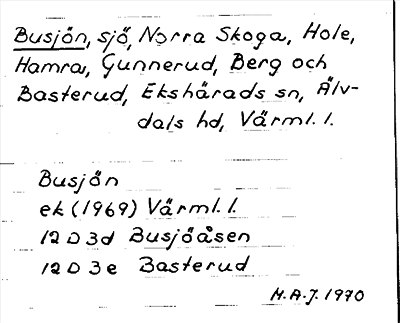 Busjön, sjö, Norra Skoga, Hole,
Hamra, Gunnerud, Berg och
Basterud, Ekshärads sn, Älv-
dals hd, Värml. l.
Busjön
ek (1969) Värml. l.
12 D 3d Busjöåsen
12 D 3e Basterud
H.A.J. 1970